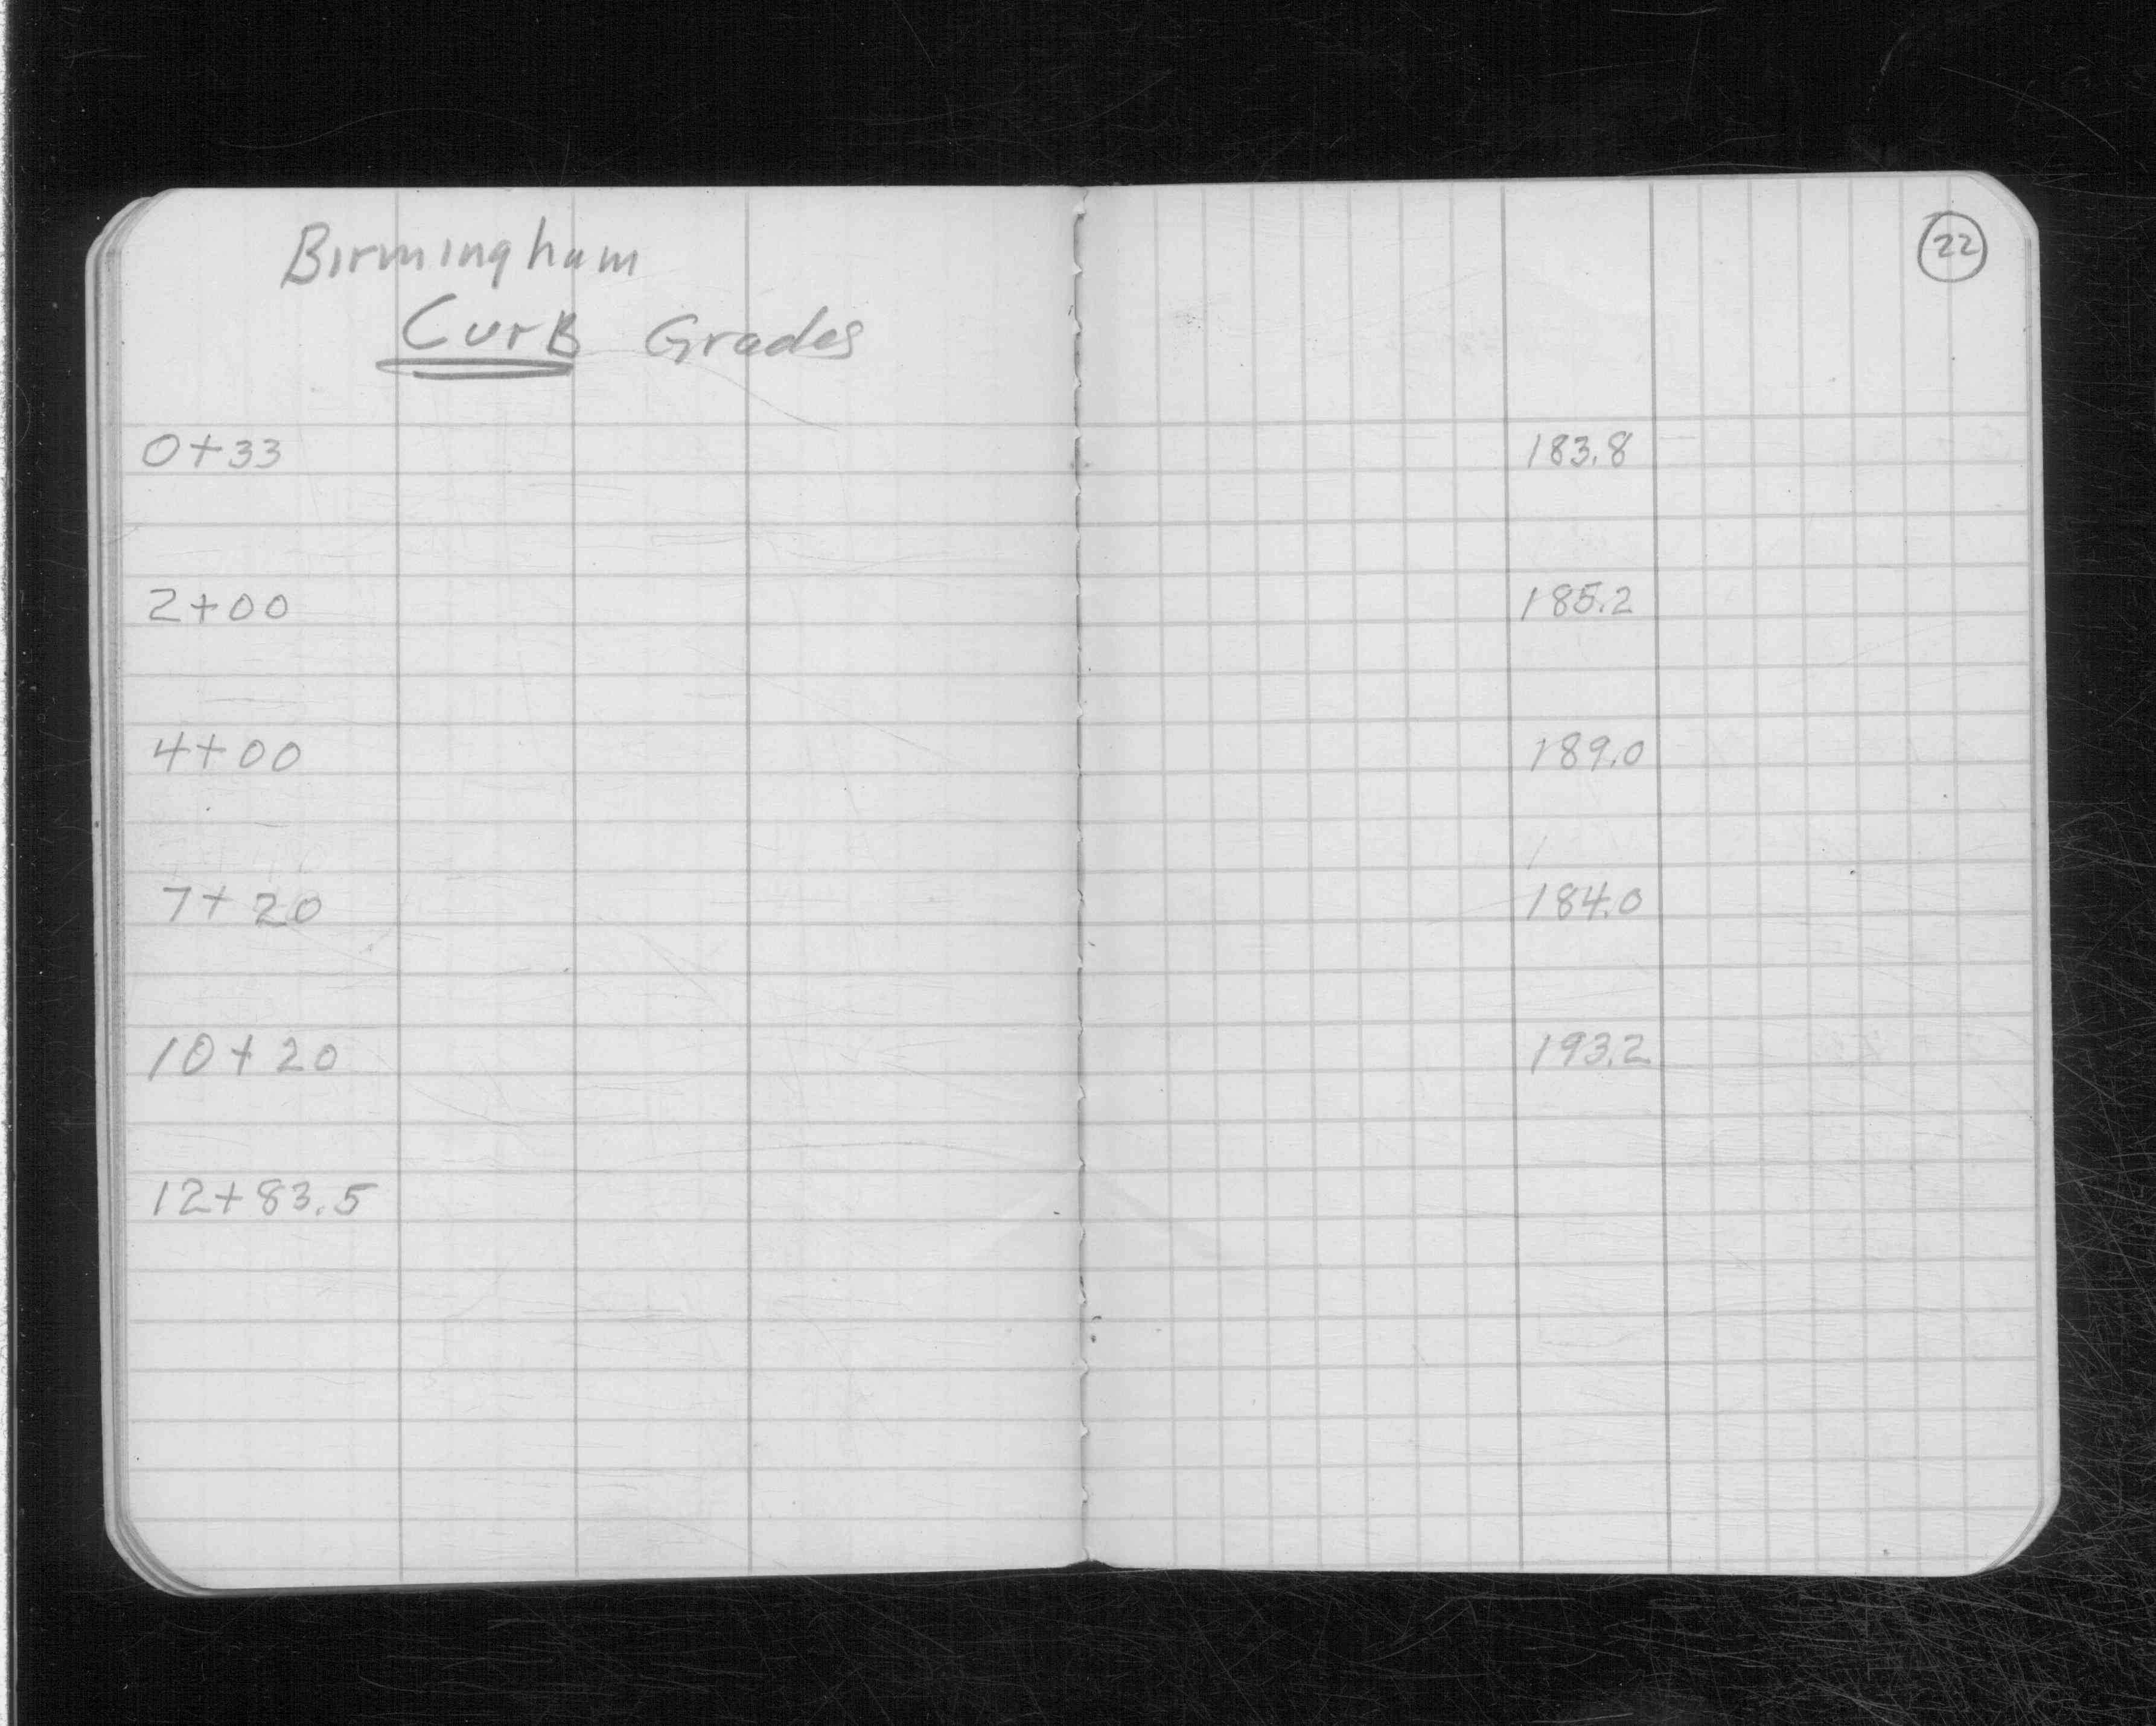 22
Birmingham
CurB Grades
0+33 183.8
2+00 185.2
4+00 189.0
7+20 184.0
10+20 193.2
12+83.5